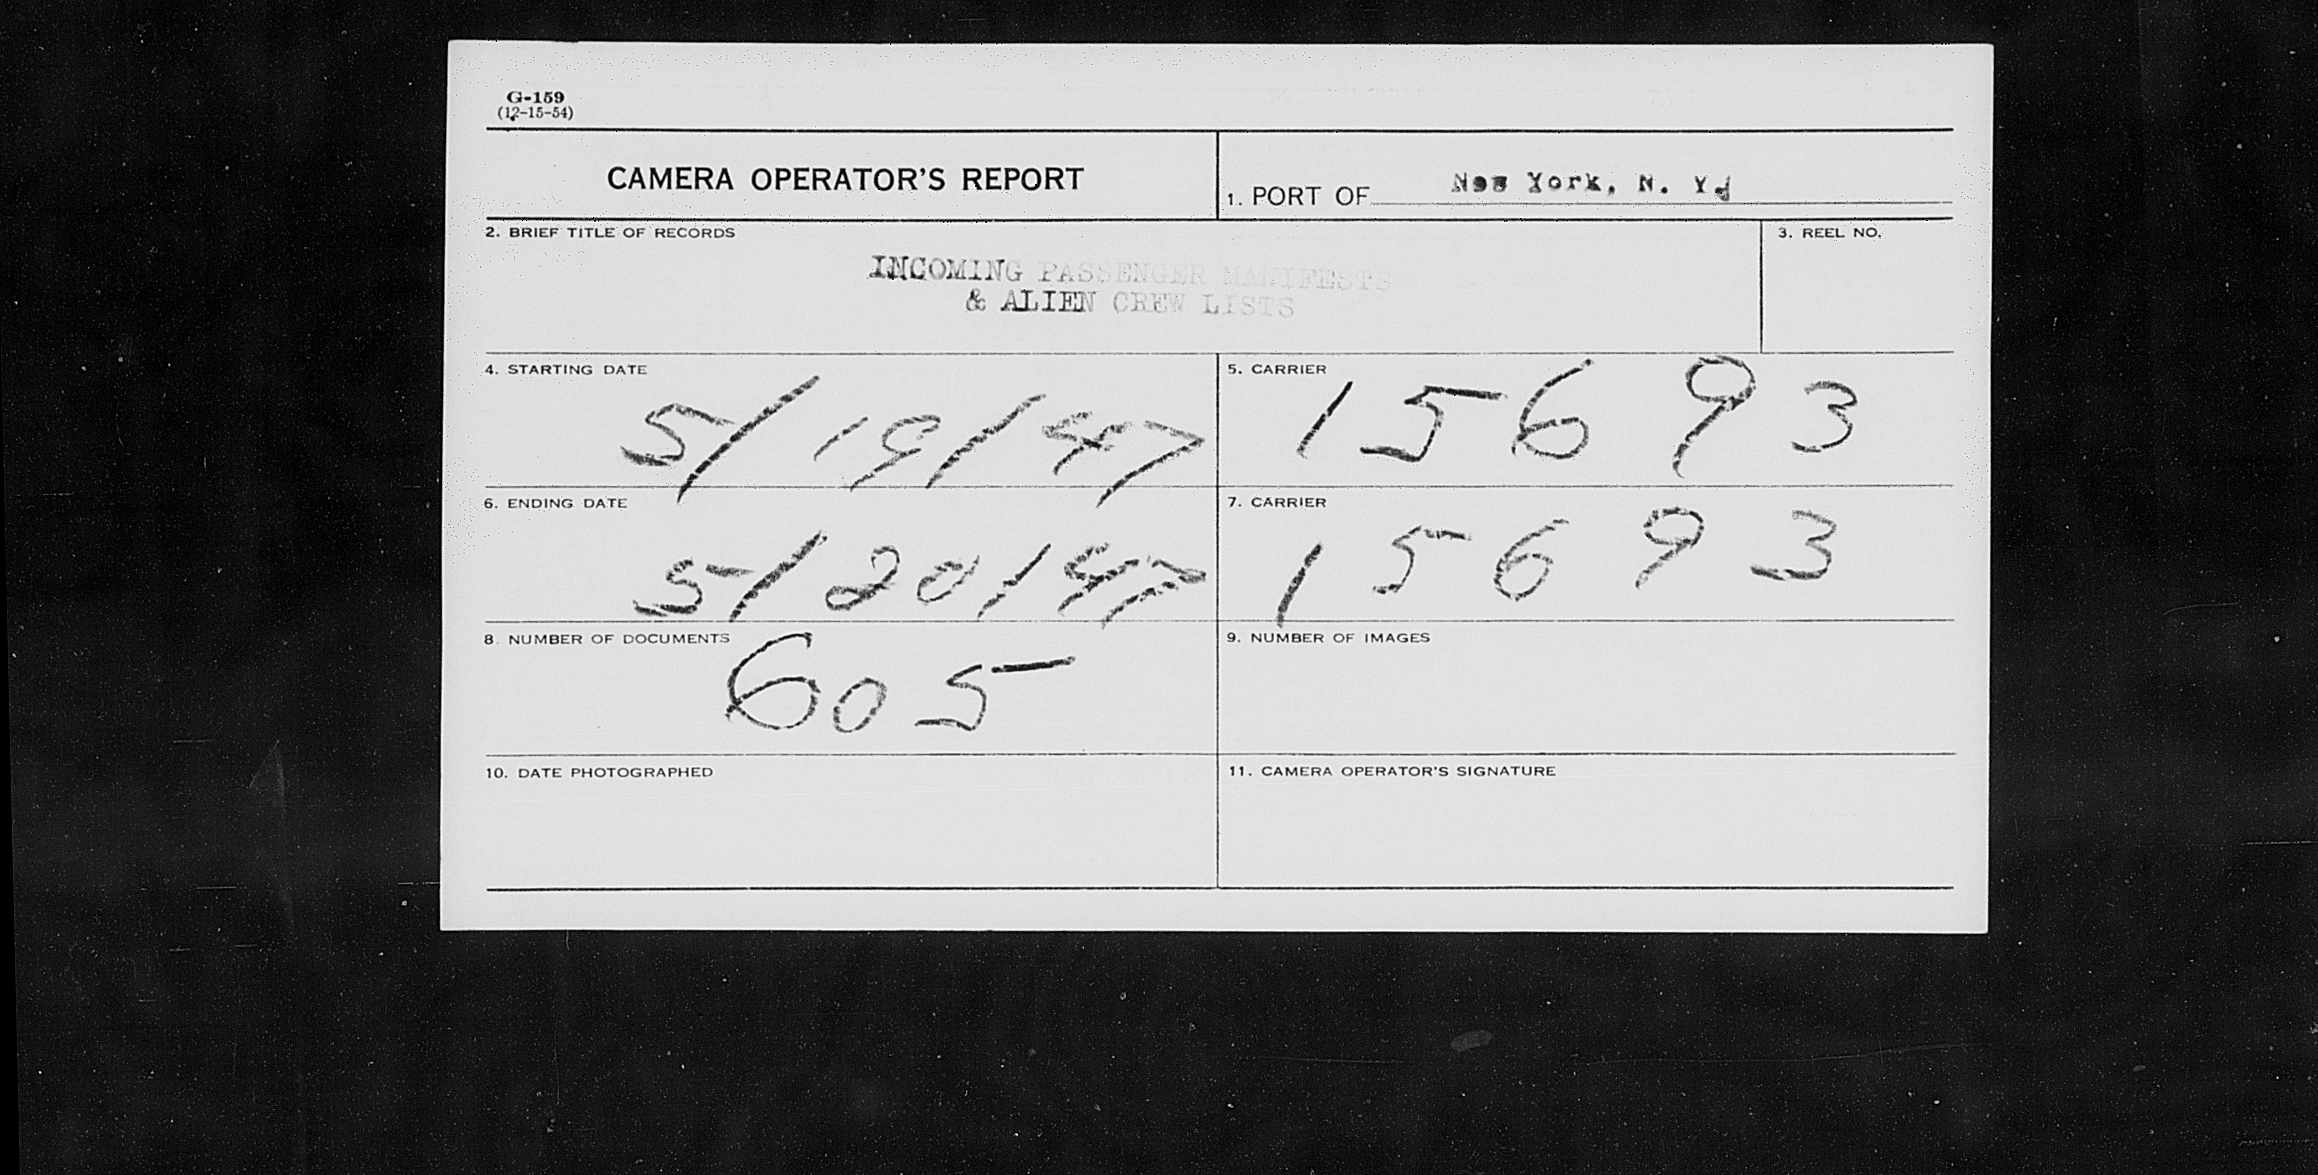 G-159
(12-15-54)
CAMERA OPERATOR'S REPORT
1. PORT OF New York, N. Y.
2. BRIEF TITLE OF RECORDS
3. REEL NO.
INCOMING PASSENGER MANIFESTS
& ALIEN CREW LISTS
4. STARTING DATE
5/19/47
5. CARRIER
15693
6. ENDING DATE
5/20/47
7. CARRIER
15693
8. NUMBER OF DOCUMENTS
605
9. NUMBER OF IMAGES
10. DATE PHOTOGRAPHED
11. CAMERA OPERATOR'S SIGNATURE